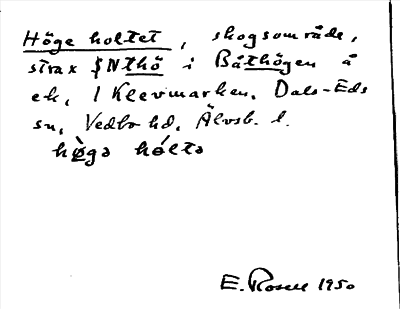 Höge holtet, skogsområde,
strax N thö i Båthögen å
ek. 1 Klevmarken. Dals-Eds
sn, Vedbo hd, Älvsb. l.
hø̀gə hóltə
E. Rosell 1950